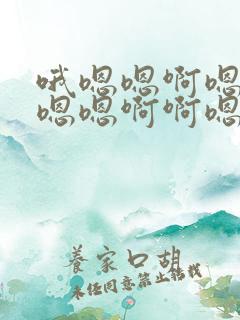 哦嗯嗯啊嗯
嗯嗯啊啊嗯
养家口胡
未经同意禁止转载